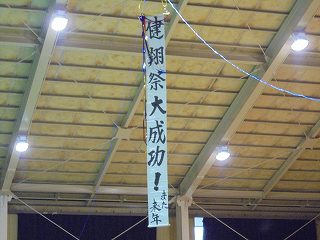 建翔祭大成功！
また
来年